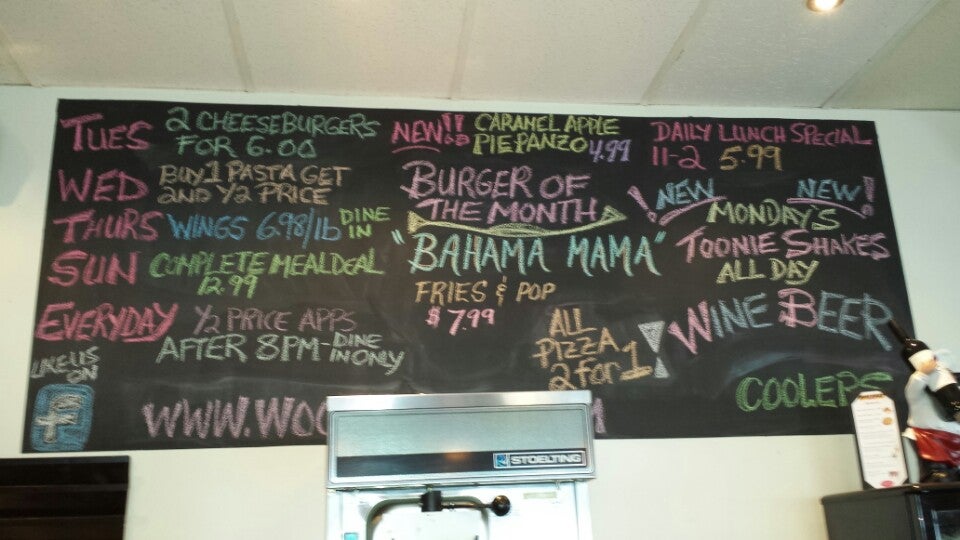 TUES 2 CHEESEBURGERS
FOR 6.00
WED BUY 1 PASTA GET
2ND 1/2 PRICE
THURS WINGS 6.98/lb DINE
IN
SUN COMPLETE MEAL DEAL
12.99
EVERYDAY 1/2 PRICE APPS
AFTER 8PM - DINE
IN ONLY
LIKE US
ON
f
WWW.WOO
NEW!! CARAMEL APPLE
PIE PANZO 4.99
BURGER OF
THE MONTH
"BAHAMA MAMA"
FRIES & POP
$7.99
ALL
PIZZA
2 for 1!
DAILY LUNCH SPECIAL
11-2 5.99
!NEW NEW!
MONDAYS
TOONIE SHAKES
ALL DAY
WINE BEER
COOLERS
STOELTING